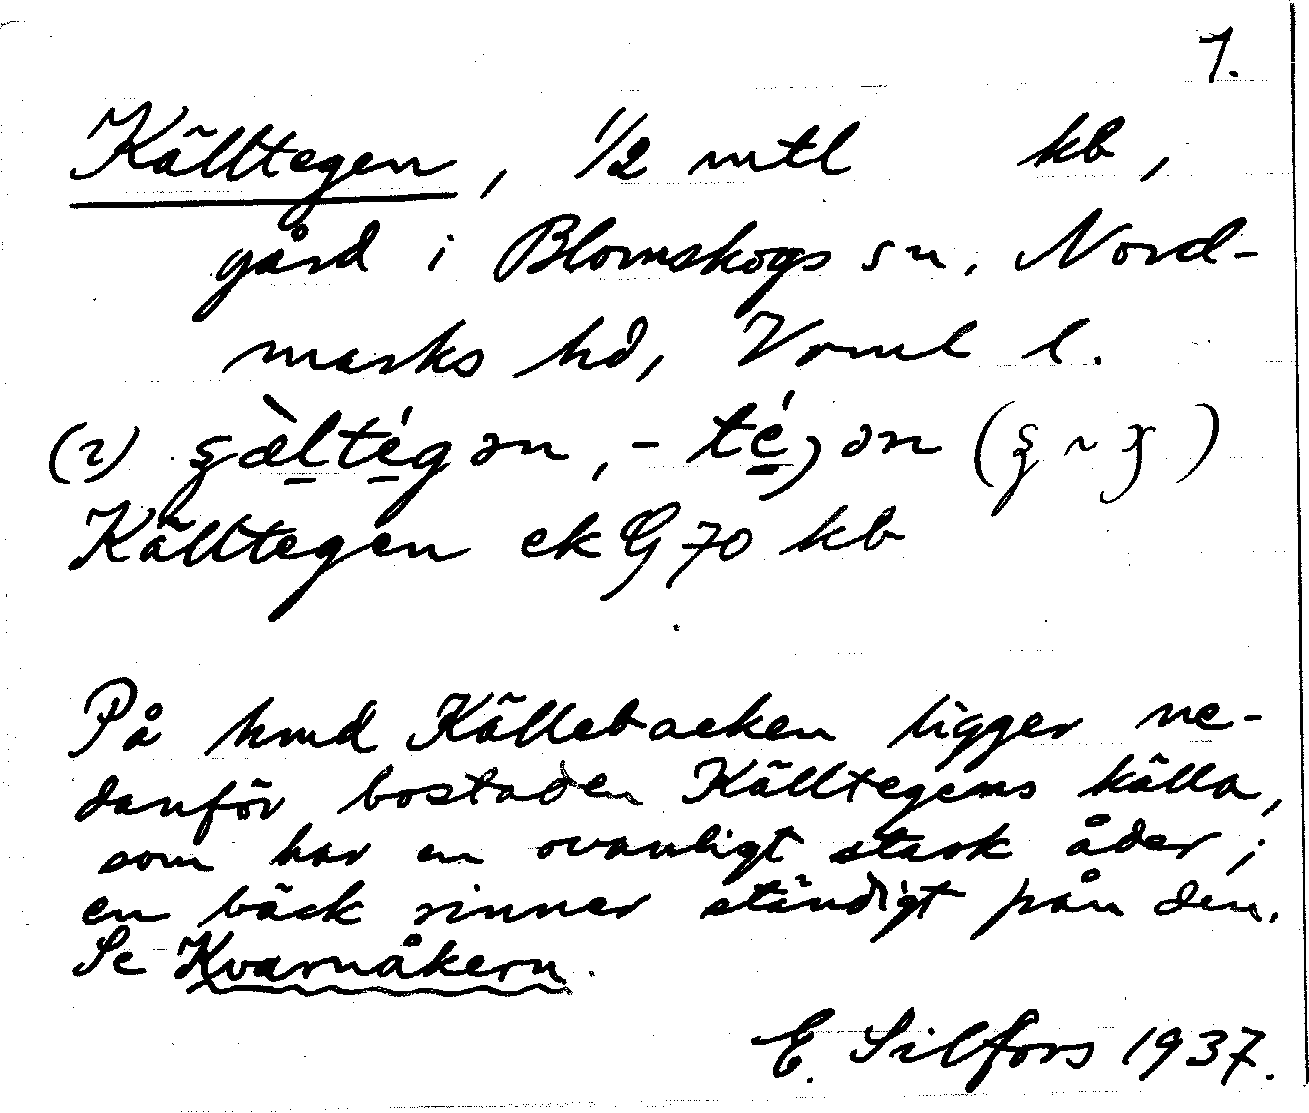 1.
Källtegen, 1/2 mtl kb,
gård i Blomskogs sn, Nord-
marks hd, Vrml l.
Källtegen ek G 70 kb
På hmd Källebacken ligger ne-
danför bostaden Källtegens källa,
som har en ovanligt stark åder;
en bäck rinner ständigt från den.
Se Kvarnåkern.
E. Silfors 1937.